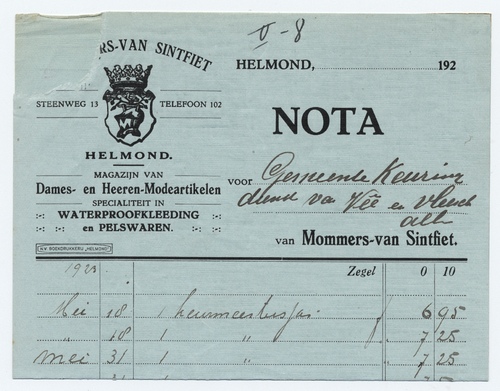 V-8
RS-VAN SINTFIET
STEENWEG 13 TELEFOON 102
HELMOND.
MAGAZIJN VAN
Dames- en Heeren-Modeartikelen
SPECIALITEIT IN
WATERPROOFKLEEDING
en PELSWAREN.
N.V. BOEKDRUKKERIJ „HELMOND”
HELMOND, 192
NOTA
voor Gemeente Keurings
dienst van Vee en Vleesch
alh
van Mommers-van Sintfiet.
1923 Zegel 0 10
Mei 18 1 keurmeestersjas 6 95
„ 18 1 „ 7 25
Mei 31 1 „ 7 25
31 1